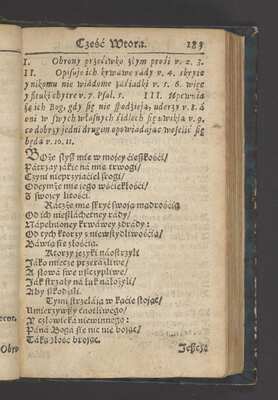 Część Wtora. 189
I. Obrony przećiwko złym prośi v. 2. 3.
II. Opisuje ich krwawe rády v. 4. skryte
y nikomu nie wiádome zasiadki v. 5. 6. więc
y sztuki chytre v. 7. Psal. 5. III. Upewnia
że ich Bog, gdy się nie spodzieją, uderzy v. 8. á
oni w swych własnych śidłach się uwikłą v. 9.
co dobrzy jedni drugim opowiádájąc weselić się
będą v. 10. 11.
BOże słysz mie w mojey ćiężkośći/
Patrzay jákie ná mię trwogi/
Czyni nieprzyiaćiel srogi/
Odeymże mię jego wśćiekłośći/
Z swojey litośći.
Rácz że mię skryć swoją mądrośćią
Od ich nieszláchetney rády/
Nápełnioney krwáwey zdrády:
Od tych ktorzy z niewstydliwośćią/
Báwią się złośćią.
Ktorzy języki náostrzyli
Jáko miecze przeráźliwe/
A słowá swe uszczypliwe/
Ják strzały ná łuk náłożyli/
Aby szkodzili.
Tymi strzeláją w kąćie stojąc/
Umierzywszy cnotliwego/
Y człowieká niewinnego:
Páná Bogá się nic nie bojąc/
Táką złość brojąc.
Jeszcze